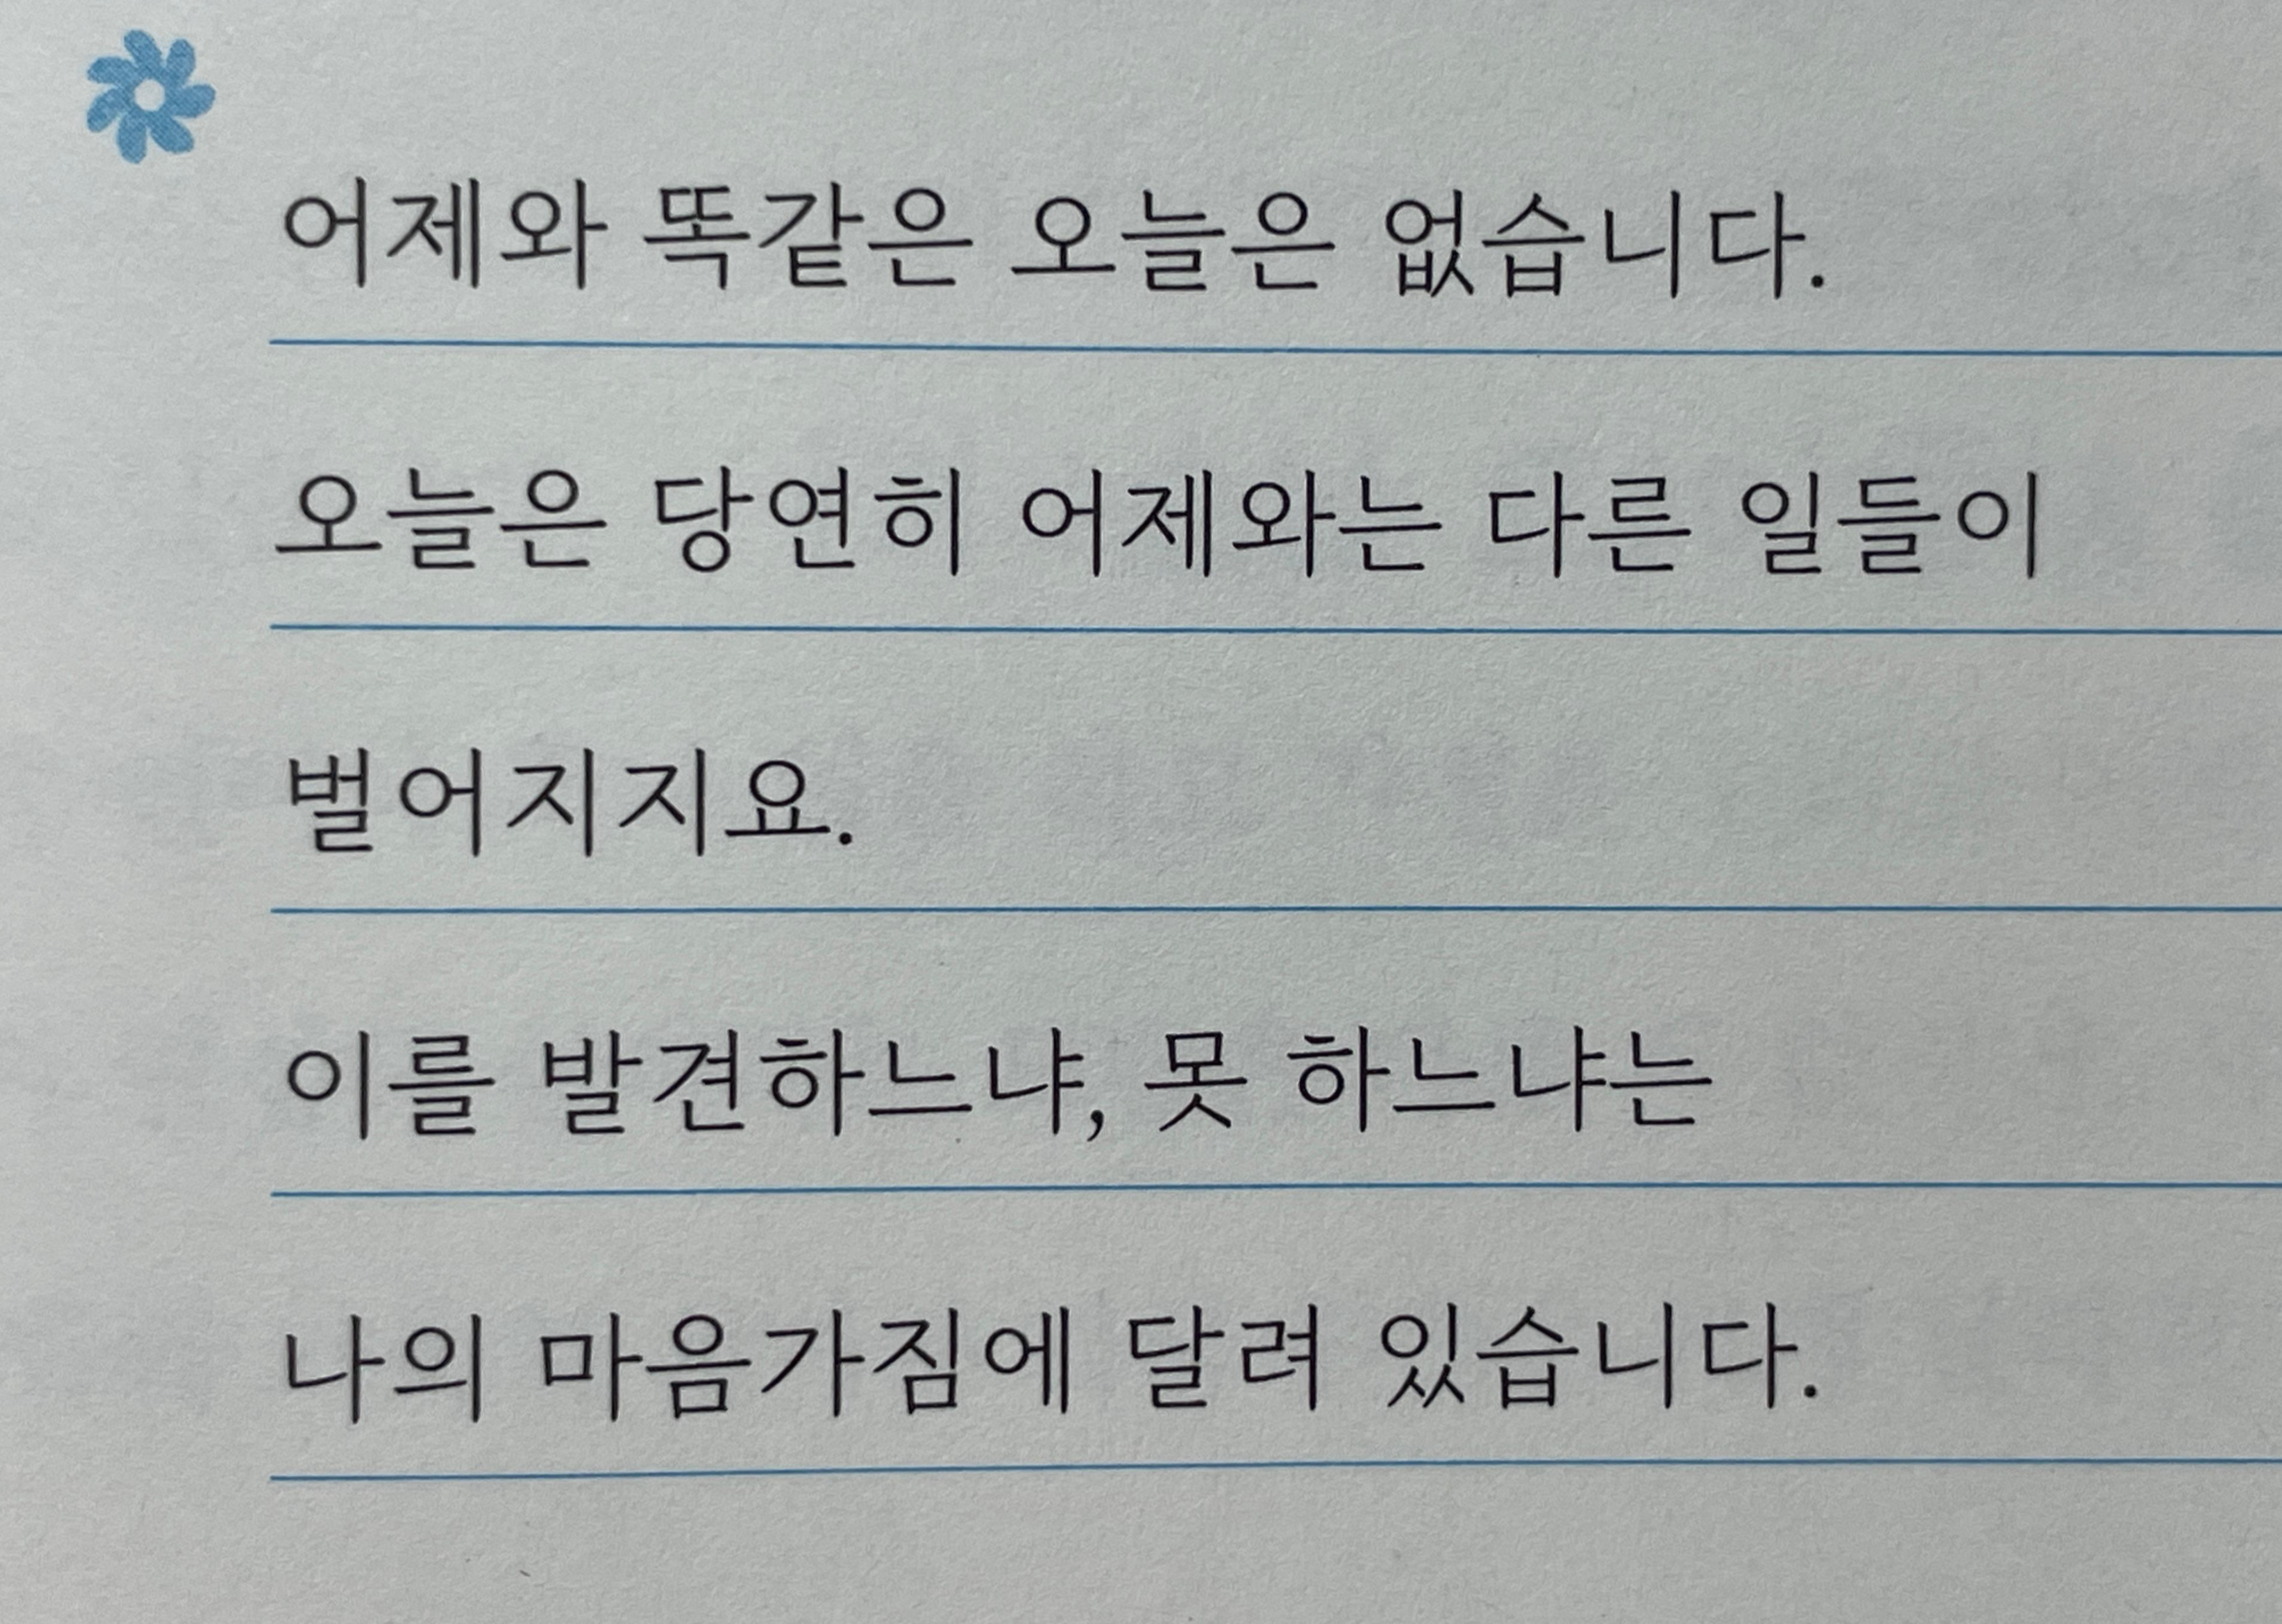 어제와 똑같은 오늘은 없습니다.
오늘은 당연히 어제와는 다른 일들이
벌어지지요.
이를 발견하느냐, 못 하느냐는
나의 마음가짐에 달려 있습니다.